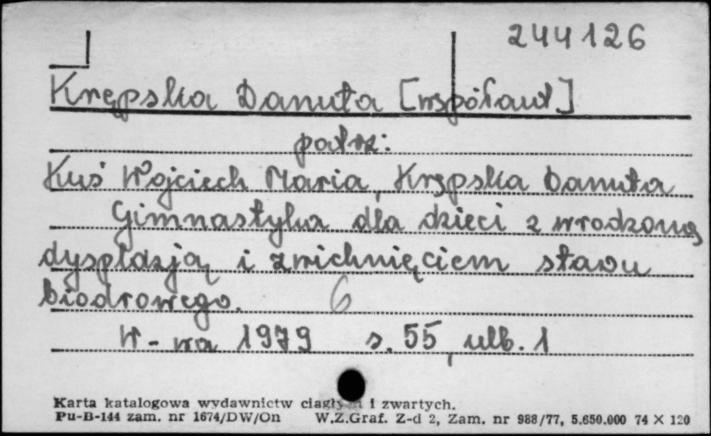 244126
Krępska Danuta [współaut]
patrz:
Kuś Wojciech Maria, Krępska Danuta
Gimnastyka dla dzieci z wrodzoną
dysplazją i zwichnięciem stawu
biodrowego. 6
W-wa 1979 s. 55, ulb. 1
Karta katalogowa wydawnictw ciągłych i zwartych.
Pu-B-144 zam. nr 1674/DW/On W.Z.Graf. Z-d 2, Zam. nr 988/77, 5.650.000 74 X 120